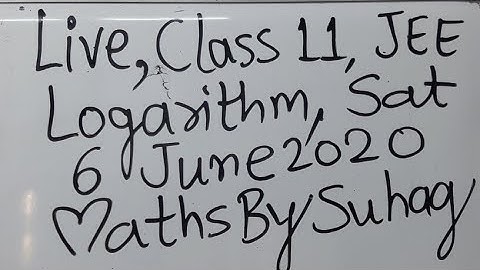 Live, Class 11, JEE
Logarithm, Sat
6 June 2020
MathsBySuhag